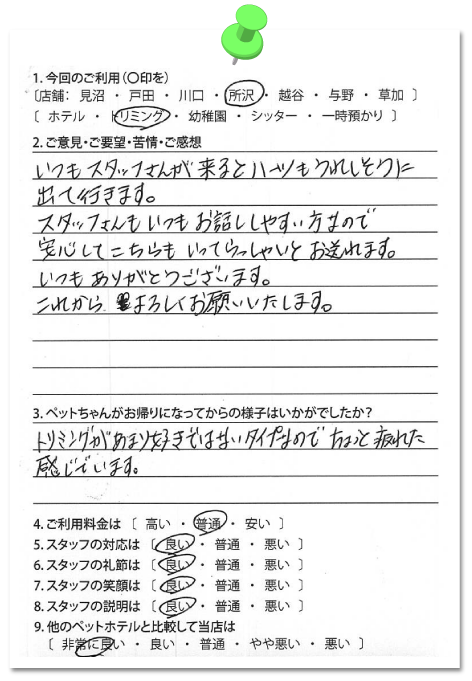 1. 今回のご利用(〇印を)
〔店舗： 見沼 ・ 戸田 ・ 川口 ・ 所沢 ・ 越谷 ・ 与野 ・ 草加 〕
〔 ホテル ・ トリミング ・ 幼稚園 ・ シッター ・ 一時預かり 〕
2. ご意見・ご要望・苦情・ご感想
いつもスタッフさんが来るとハーツもうれしそうに
出て行きます。
スタッフさんもいつもお話ししやすい方なので
安心してこちらもいってらっしゃいとお送れます。
いつもありがとうございます。
これから よろしくお願いいたします。
3. ペットちゃんがお帰りになってからの様子はいかがでしたか？
トリミングがあまり好きではないタイプなのでちょっと疲れた
感じでいます。
4. ご利用料金は 〔 高い ・ 普通 ・ 安い 〕
5. スタッフの対応は 〔 良い ・ 普通 ・ 悪い 〕
6. スタッフの礼節は 〔 良い ・ 普通 ・ 悪い 〕
7. スタッフの笑顔は 〔 良い ・ 普通 ・ 悪い 〕
8. スタッフの説明は 〔 良い ・ 普通 ・ 悪い 〕
9. 他のペットホテルと比較して当店は
〔 非常に良い ・ 良い ・ 普通 ・ やや悪い ・ 悪い 〕